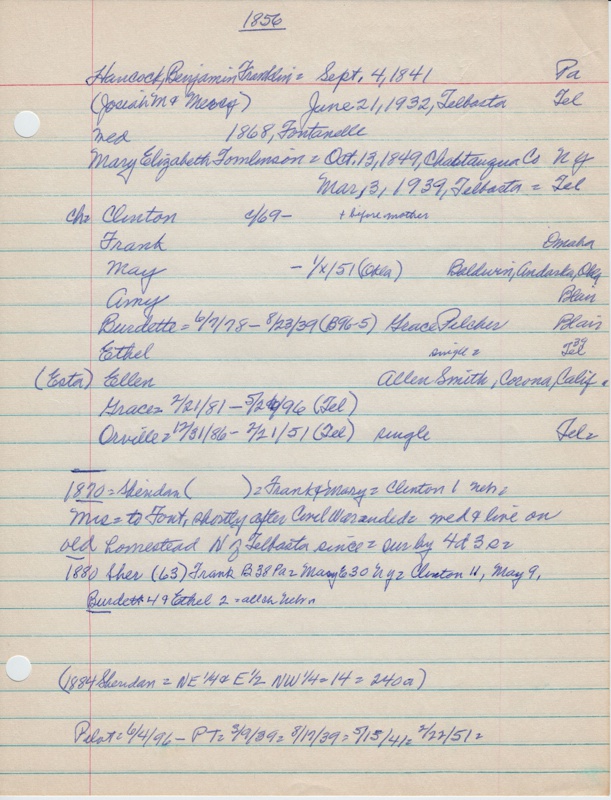 1856
Hancock, Benjamin Franklin = Sept. 4, 1841 Pa
(Josiah M & Mercy) June 21, 1932, Telbasta Tel
med 1868, Fontanelle
Mary Elizabeth Tomlinson = Oct. 13, 1849, Chautauqua Co N Y
Mar, 3, 1939, Telbasta = Tel
ch= Clinton c/69 - + before mother
Frank Omaha
May - 1/x/51 (Okla) Baldwin, Andarko, Okla
Amy Blair
Burdette = 6/7/78 - 8/23/39 (B96-5) Grace Pilcher Blair
Ethel single = 39 Tel
(Esta) Ellen Allen Smith, Corona, Calif.
Grace = 2/21/81 - 5/24/96 (Tel)
Orville = 12/31/86 - 2/21/51 (Tel) single Tel =
1870 = Sheridan ( ) = Frank & Mary = Clinton 1 Nebr
Mrs = to Font, shortly after Civil War ended = med & live on
old homestead N of Telbasta since = sur by 4d 3s =
1880 Sher (63) Frank B 38 Pa = Mary E 30 N Y = Clinton 11, May 9,
Burdett 4 & Ethel 2 = all ch Nebr
(1884 Sheridan = NE 1/4 & E 1/2 NW 1/4 = 14 = 240a)
Pilot = 6/4/96 - PT = 3/9/39 = 8/17/39 = 5/15/41 = 2/22/51 =